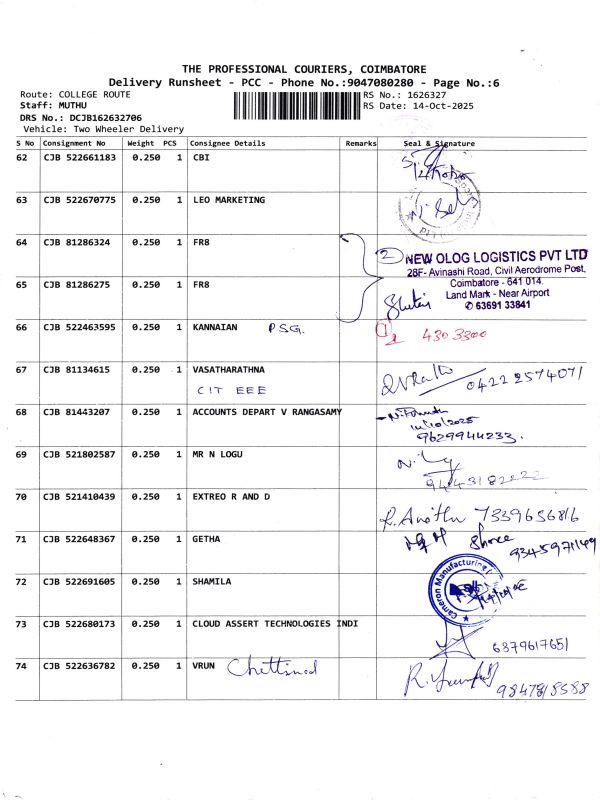 THE PROFESSIONAL COURIERS, COIMBATORE
Delivery Runsheet - PCC - Phone No.:9047080280 - Page No.:6
Route: COLLEGE ROUTE RS No.: 1626327
Staff: MUTHU RS Date: 14-Oct-2025
DRS No.: DCJB162632706
Vehicle: Two Wheeler Delivery
S No Consignment No Weight PCS Consignee Details Remarks Seal & Signature
62 CJB 522661183 0.250 1 CBI
63 CJB 522670775 0.250 1 LEO MARKETING
64 CJB 81286324 0.250 1 FR8
2 NEW OLOG LOGISTICS PVT LTD
28F- Avinashi Road, Civil Aerodrome Post,
65 CJB 81286275 0.250 1 FR8
Coimbatore - 641 014.
Land Mark - Near Airport
✆ 63691 33841
66 CJB 522463595 0.250 1 KANNAIAN PSG. 4303300
67 CJB 81134615 0.250 1 VASATHARATHNA
CIT EEE 0422 2574071
68 CJB 81443207 0.250 1 ACCOUNTS DEPART V RANGASAMY
14/10/2025
9629944233.
69 CJB 521802587 0.250 1 MR N LOGU
70 CJB 521410439 0.250 1 EXTREO R AND D
7339656816
71 CJB 522648367 0.250 1 GETHA
9345971149
72 CJB 522691605 0.250 1 SHAMILA
Cameron Manufacturing
73 CJB 522680173 0.250 1 CLOUD ASSERT TECHNOLOGIES INDI
6379617651
74 CJB 522636782 0.250 1 VRUN Chettinad